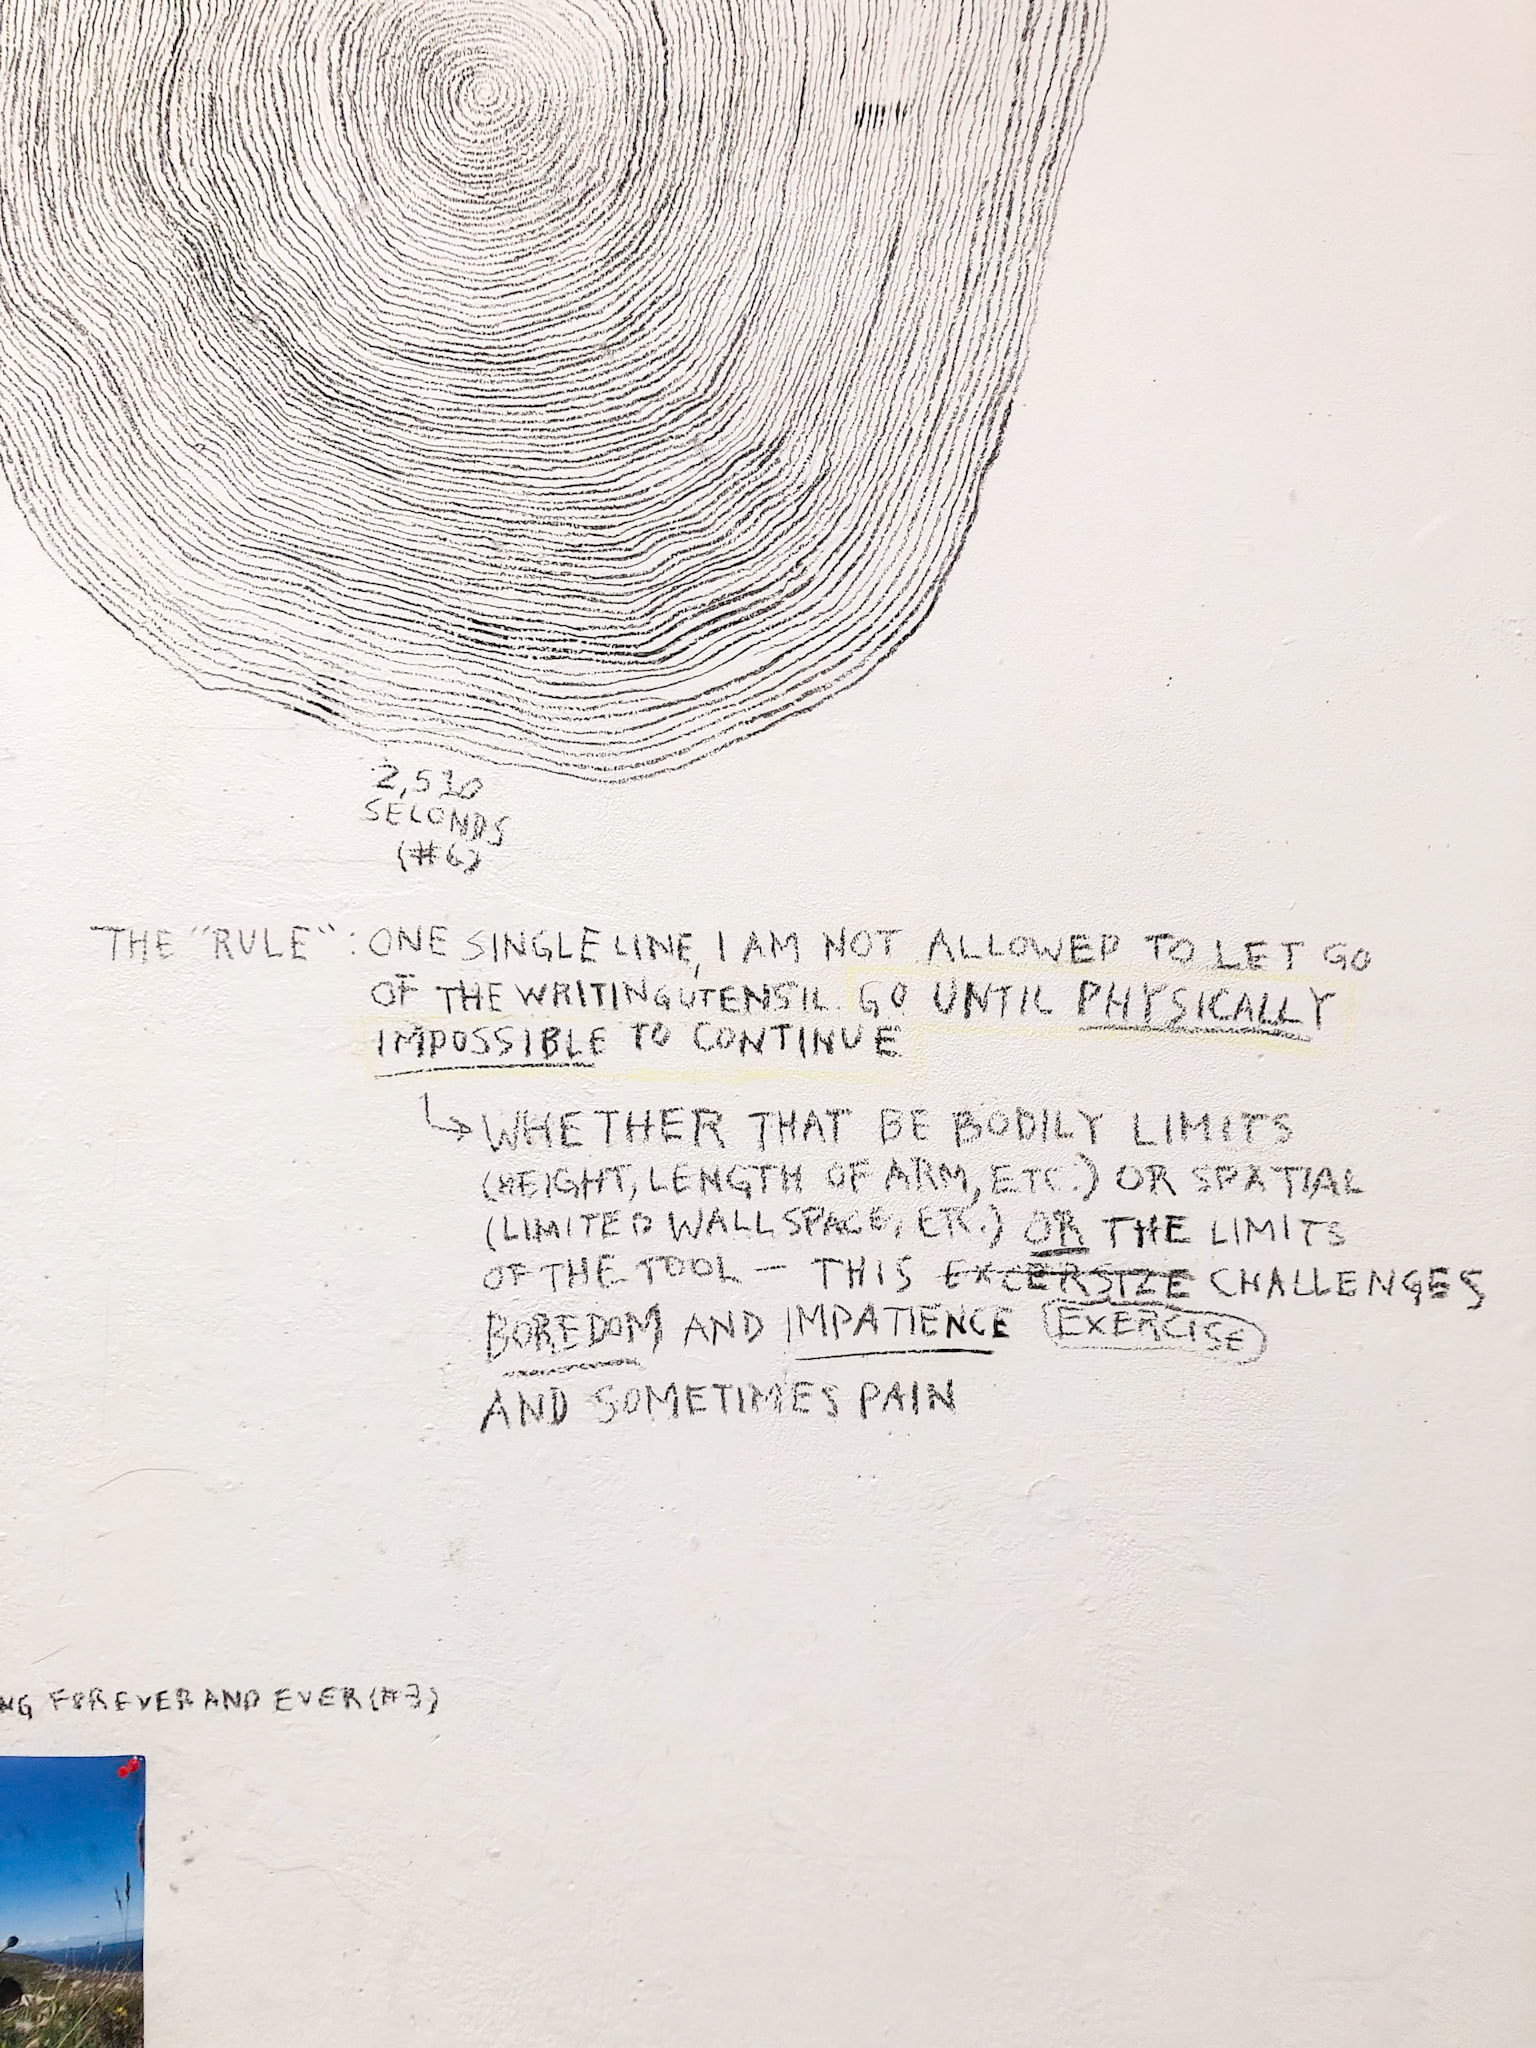 2,510
SECONDS
(#6)
THE "RULE": ONE SINGLE LINE, I AM NOT ALLOWED TO LET GO
OF THE WRITING UTENSIL. GO UNTIL PHYSICALLY
IMPOSSIBLE TO CONTINUE
↳ WHETHER THAT BE BODILY LIMITS
(HEIGHT, LENGTH OF ARM, ETC.) OR SPATIAL
(LIMITED WALL SPACE, ETC.) OR THE LIMITS
OF THE TOOL — THIS EXCERSIZE CHALLENGES
BOREDOM AND IMPATIENCE EXERCISE
AND SOMETIMES PAIN
NG FOREVER AND EVER (#3)